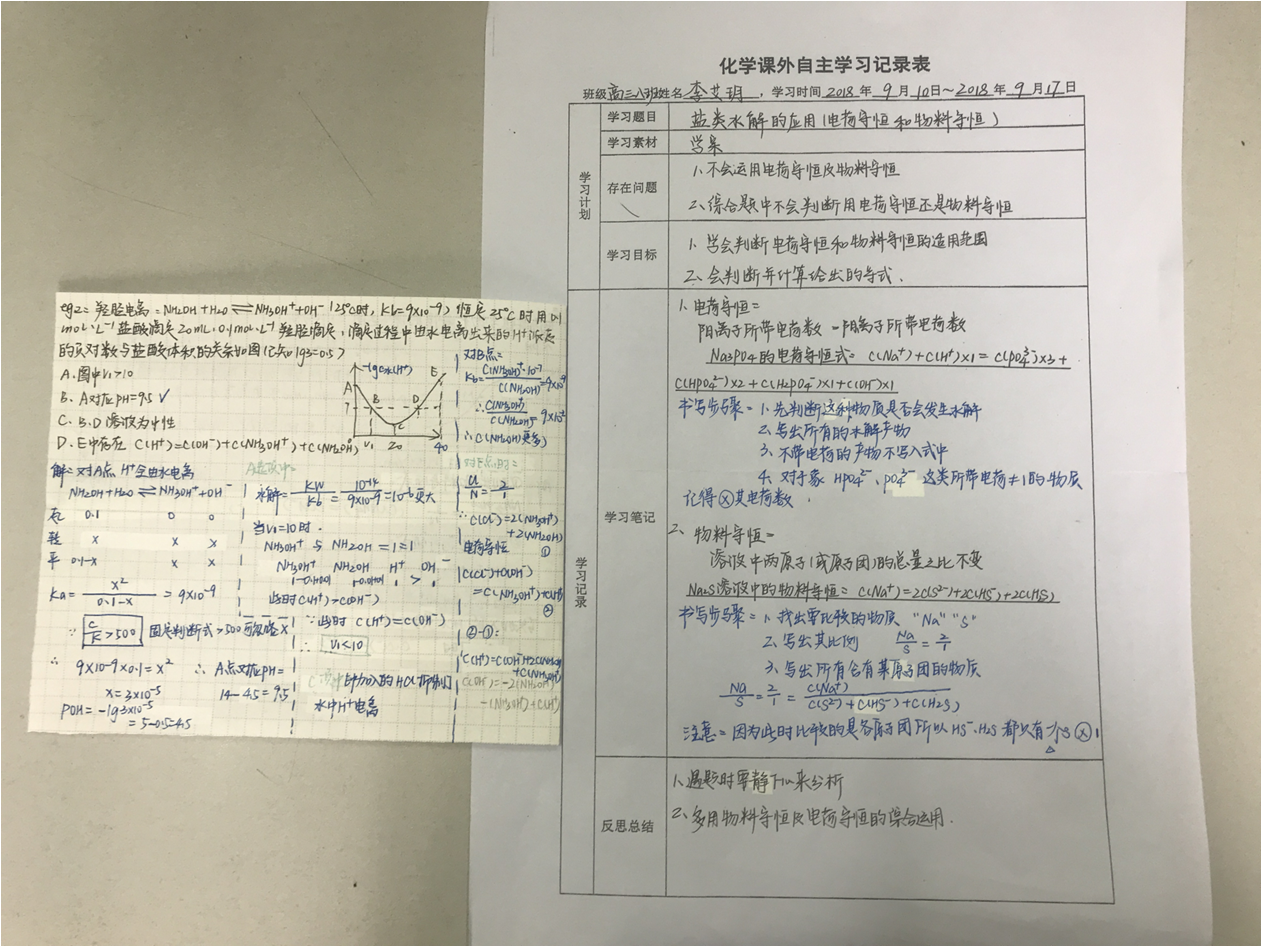 化学课外自主学习记录表
班级高三八班姓名 李艾玥 ，学习时间 2018 年 9 月 10日～2018 年 9 月 17日
学习计划
学习题目
盐类水解的应用(电荷守恒和物料守恒)
学习素材
学案
存在问题
1、不会运用电荷守恒及物料守恒
2、综合题中不会判断用电荷守恒还是物料守恒
学习目标
1、学会判断电荷守恒和物料守恒的适用范围
2、会判断并计算给出的等式.
学习记录
学习笔记
1、电荷守恒=
阳离子所带电荷数 = 阴离子所带电荷数
Na3PO4的电荷守恒式= C(Na⁺)+C(H⁺)×1=C(PO4³⁻)×3+
C(HPO4²⁻)×2+C(H2PO4⁻)×1+C(OH⁻)×1
书写步骤=1、先判断这种物质是否会发生水解
2、写出所有的水解产物
3、不带电荷的产物不写入式中
4、对于象 HPO4²⁻、PO4³⁻ 这类所带电荷≠1的物质
记得ⓧ其电荷数.
2、物料守恒=
溶液中两原子(或原子团)的总量之比不变
Na2S溶液中的物料守恒= C(Na⁺)=2C(S²⁻)+2C(HS⁻)+2C(H2S)
书写步骤=1、找出要比较的物质 "Na" "S"
2、写出其比例 Na/S=2/1
3、写出所有含有某原子团的物质
Na/S=2/1=C(Na⁺)/C(S²⁻)+C(HS⁻)+C(H2S)
注意=因为此时比较的是各原子团所以HS⁻、H2S都只有一个S ⓧ1
反思总结
1、遇题时要静下心来分析
2、多用物料守恒及电荷守恒的综合运用.
eg2= 羟胺电离=NH2OH+H2O⇌NH3OH⁺+OH⁻(25℃时，Kb=9×10⁻⁹)恒定25℃时用0.1
mol·L⁻¹盐酸滴定20mL 0.1mol·L⁻¹羟胺滴定，滴定过程中由水电离出来的H⁺浓度
的负对数与盐酸体积的关系如图(已知lg3=0.5)
A.图中V1>10
B、A对应pH=9.5 ✓
C、B、D溶液为中性
D、E中存在 C(H⁺)=C(OH⁻)+C(NH3OH⁺)+C(NH2OH)
-lgC水(H⁺)
A
E
7
B
D
C
0
V1
20
40
解=对A点 H⁺全由水电离
NH2OH+H2O⇌NH3OH⁺+OH⁻
0.1 0 0
转 x x x
平 0.1-x x x
Ka=x²/0.1-x=9×10⁻⁹
∵ C/K>500 固定判断式>500可忽略x
∴ 9×10⁻⁹×0.1=x²
x=3×10⁻⁵
POH=-lg3×10⁻⁵
=5-0.5=4.5
∴A点对应pH=
14-4.5=9.5
水解=KW/Kb=10⁻¹⁴/9×10⁻⁹=10⁻⁶更大
当V1=10时.
NH3OH⁺与NH2OH=1=1
NH3OH⁺ NH2OH H⁺ OH⁻
此时C(H⁺)>C(OH⁻)
∵此时 C(H⁺)=C(OH⁻)
∴ V1<10
水中H⁺电离
对B点=
Kb=C(NH3OH⁺)·10⁻⁷/C(NH2OH)=9×10⁻⁹
∴C(NH3OH⁺)/C(NH2OH)=9×10⁻²
∴C(NH2OH)更多)
Cl/N=2/1
∴C(Cl⁻)=2(NH3OH⁺)
+2(NH2OH)
①
电荷守恒
C(Cl⁻)+C(OH⁻)
=C(NH3OH⁺)+C(H⁺)
②
②-①=
C(H⁺)=C(OH⁻)+2C(NH2OH)
+C(NH3OH⁺)
C(OH⁻)=-2(NH2OH)
-(NH3OH⁺)+C(H⁺)